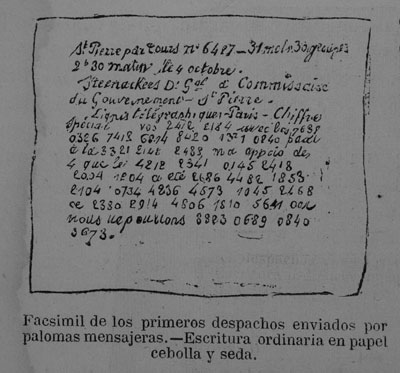 St Pierre par Tours nº 6487 — 31 mots. 30 groupes
2h 30 matin le 4 octobre.
Steenackers D. Gal et Commissaire
du Gouvernement — St Pierre.
Lignes télégraphiques — Paris — Chiffre
Spécial vos 2412 2184 avec les 7688
0326 7418 6214 8420 par
à la 3321 2488 m'a de
4 que le 4212 2341 0145 2418
1204 a été 2686 4482 1853
2104 0734 4236 4573 1045 2468
ce 2330 2914 4806 1810 5641
nous ne pouvons 3323 0689 0840
3673.
Facsimil de los primeros despachos enviados por
palomas mensajeras.—Escritura ordinaria en papel
cebolla y seda.